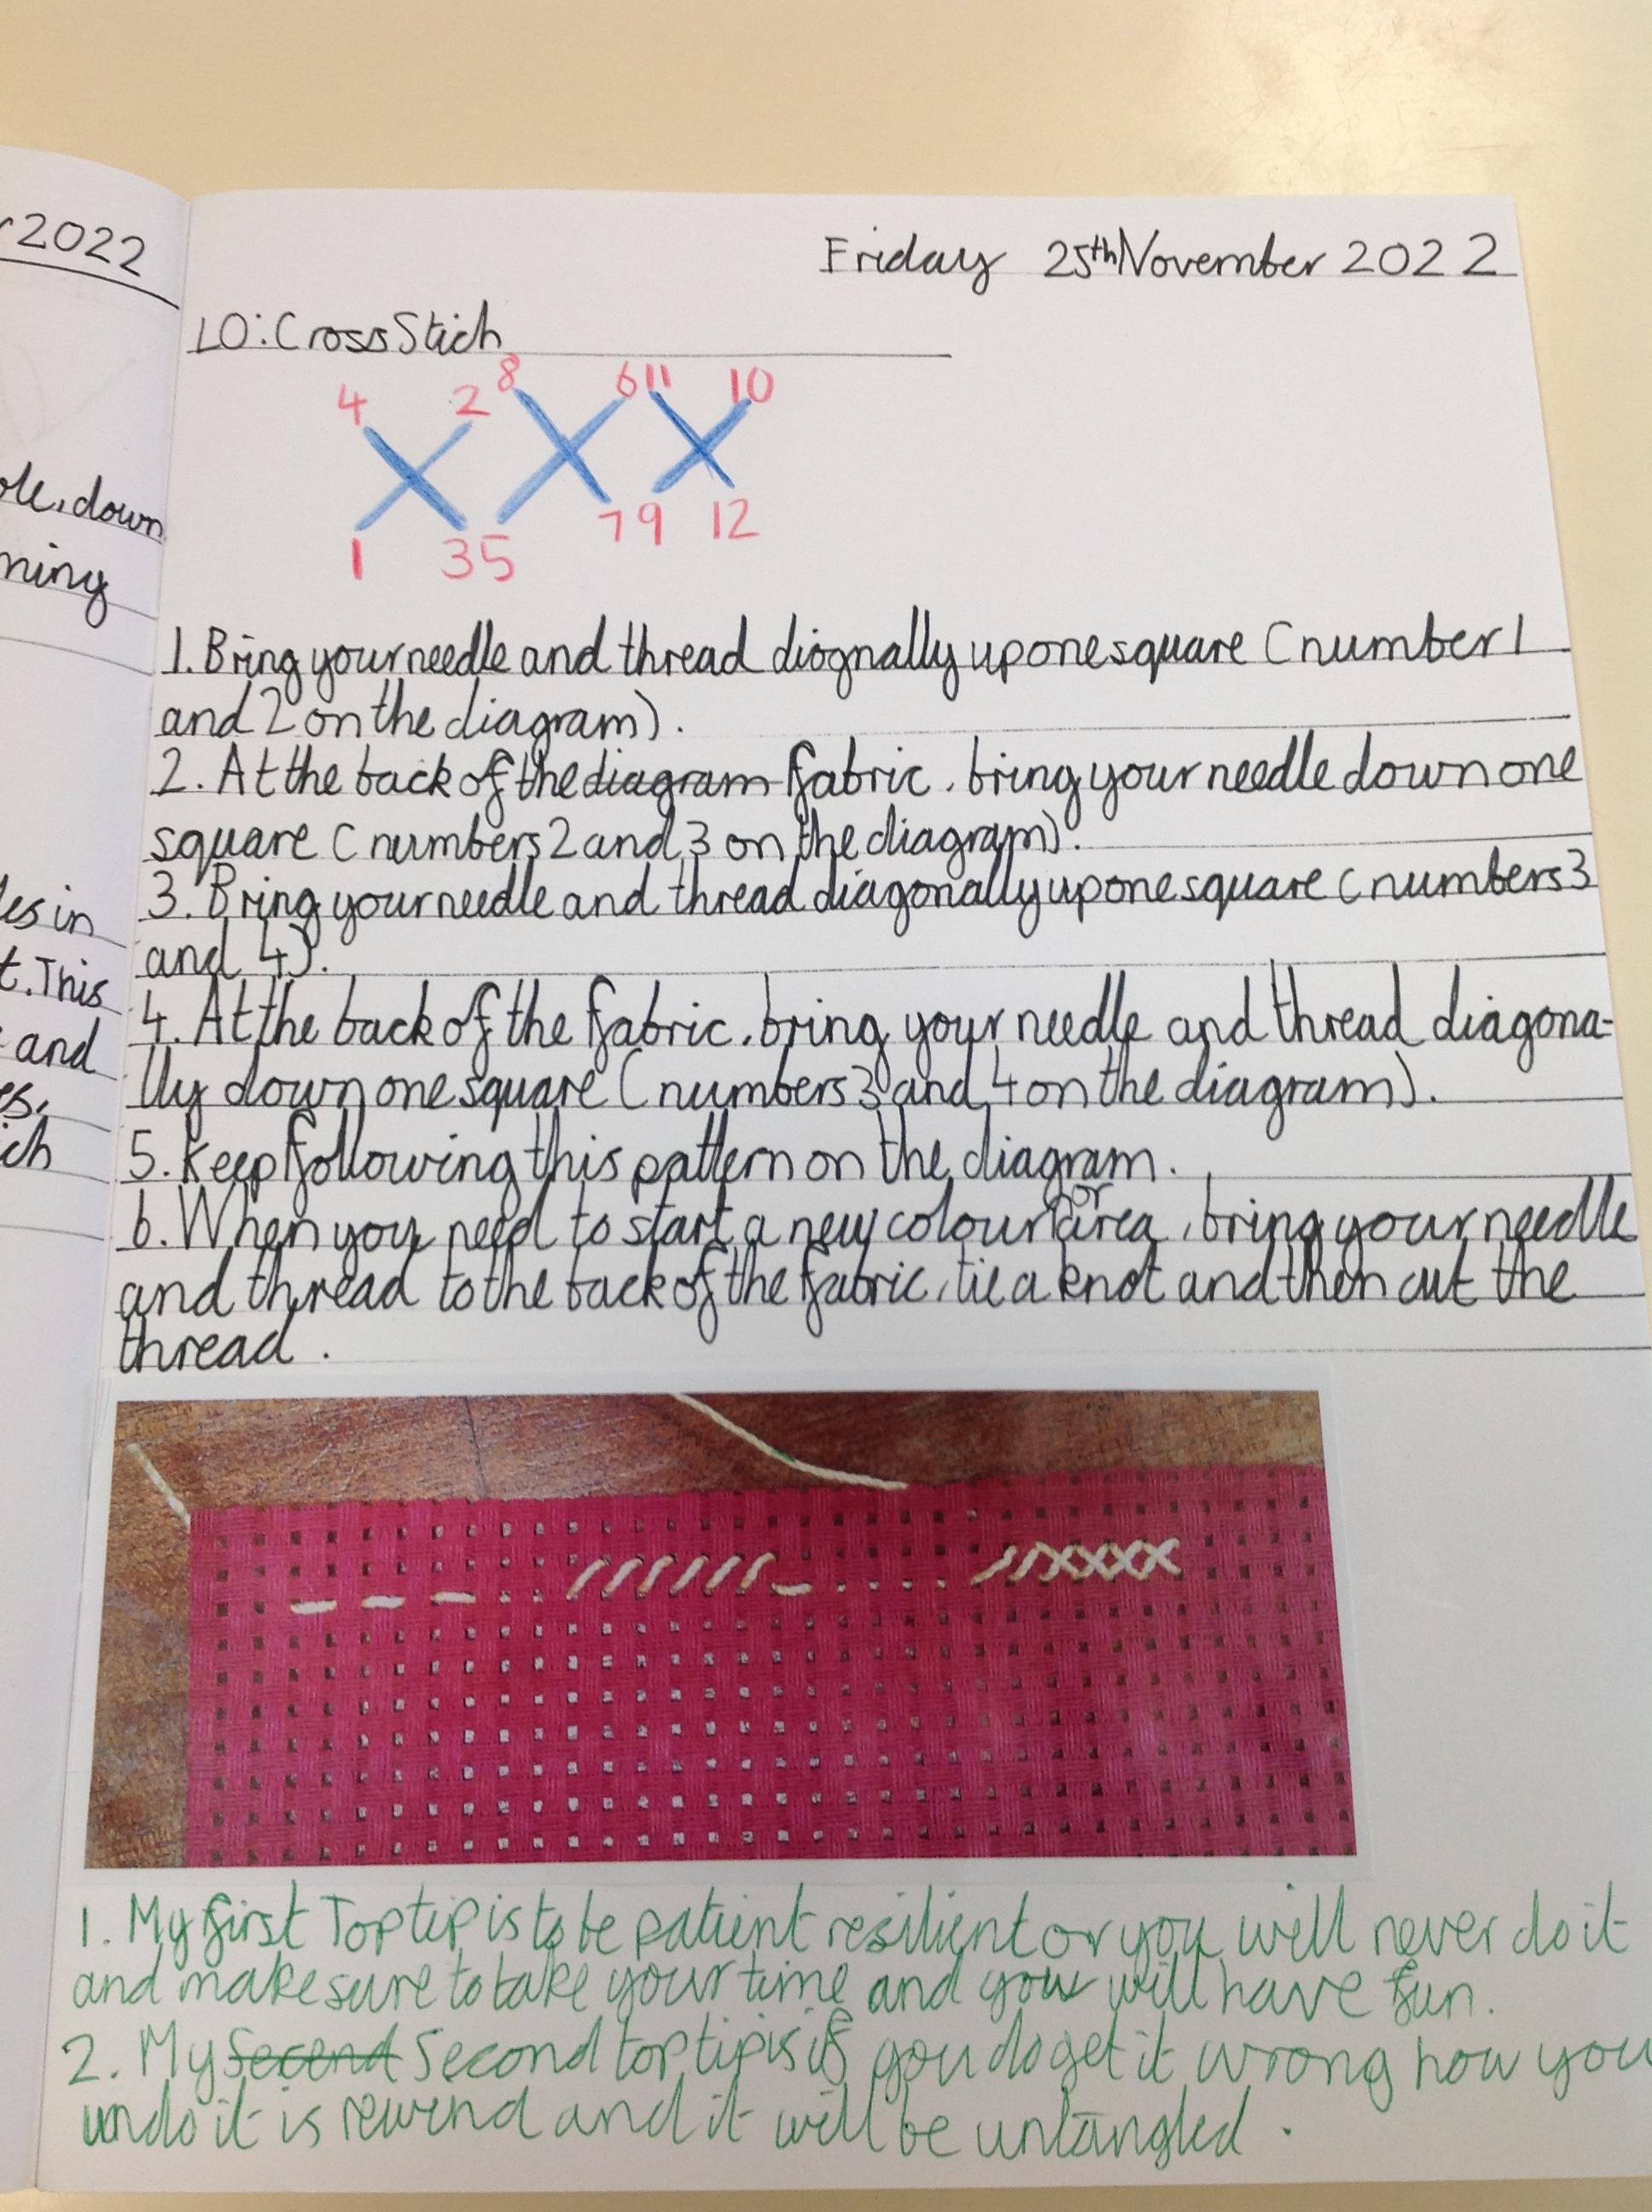 r 2022
ole, down
ning
les in
t. This
and
es,
ich
Friday 25th November 2022
LO: Cross Stich
4 2 8 6 11 10
1 3 5 7 9 12
1. Bring your needle and thread diognally up one square (number 1
and 2 on the diagram).
2. At the back of the diagram fabric, bring your needle down one
square (numbers 2 and 3 on the diagram).
3. Bring your needle and thread diagonally up one square (numbers 3
and 4).
4. At the back of the fabric, bring your needle and thread diagona-
lly down one square (numbers 3 and 4 on the diagram).
5. Keep following this pattern on the diagram.
6. When you need to start a new colour or area, bring your needle
and thread to the back of the fabric, tie a knot and then cut the
thread.
1. My first Top tip is to be patient resilient or you will never do it
and make sure to take your time and you will have fun.
2. My Secend Second top tip is if you do get it wrong how you
undo it is rewind and it will be untangled.